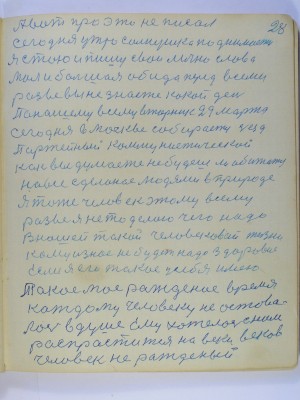 28
А вот про это не писал
сегодня утро солнушка подниматся
я стою и пишу свои мочно слова
моли большая обида пред всеми
разве вы не знаете какой ден
Попашему всему вторник 29 марта
сегодня в Москве собирается съезд
Партейный коммунистической
как вы думаете не будеш
на все сделаное людями в природе
я тоже человек этому всему
разве я не то делаю чего надо
В нашей такой человековай жизни
кому из нас не будет надо здоровье
если я его такое у себя имею
Такое мое рождение время
каждому человеку не оставалось
в душе ему хотелось с ним
распраститься на веки веков
человек не рожденый